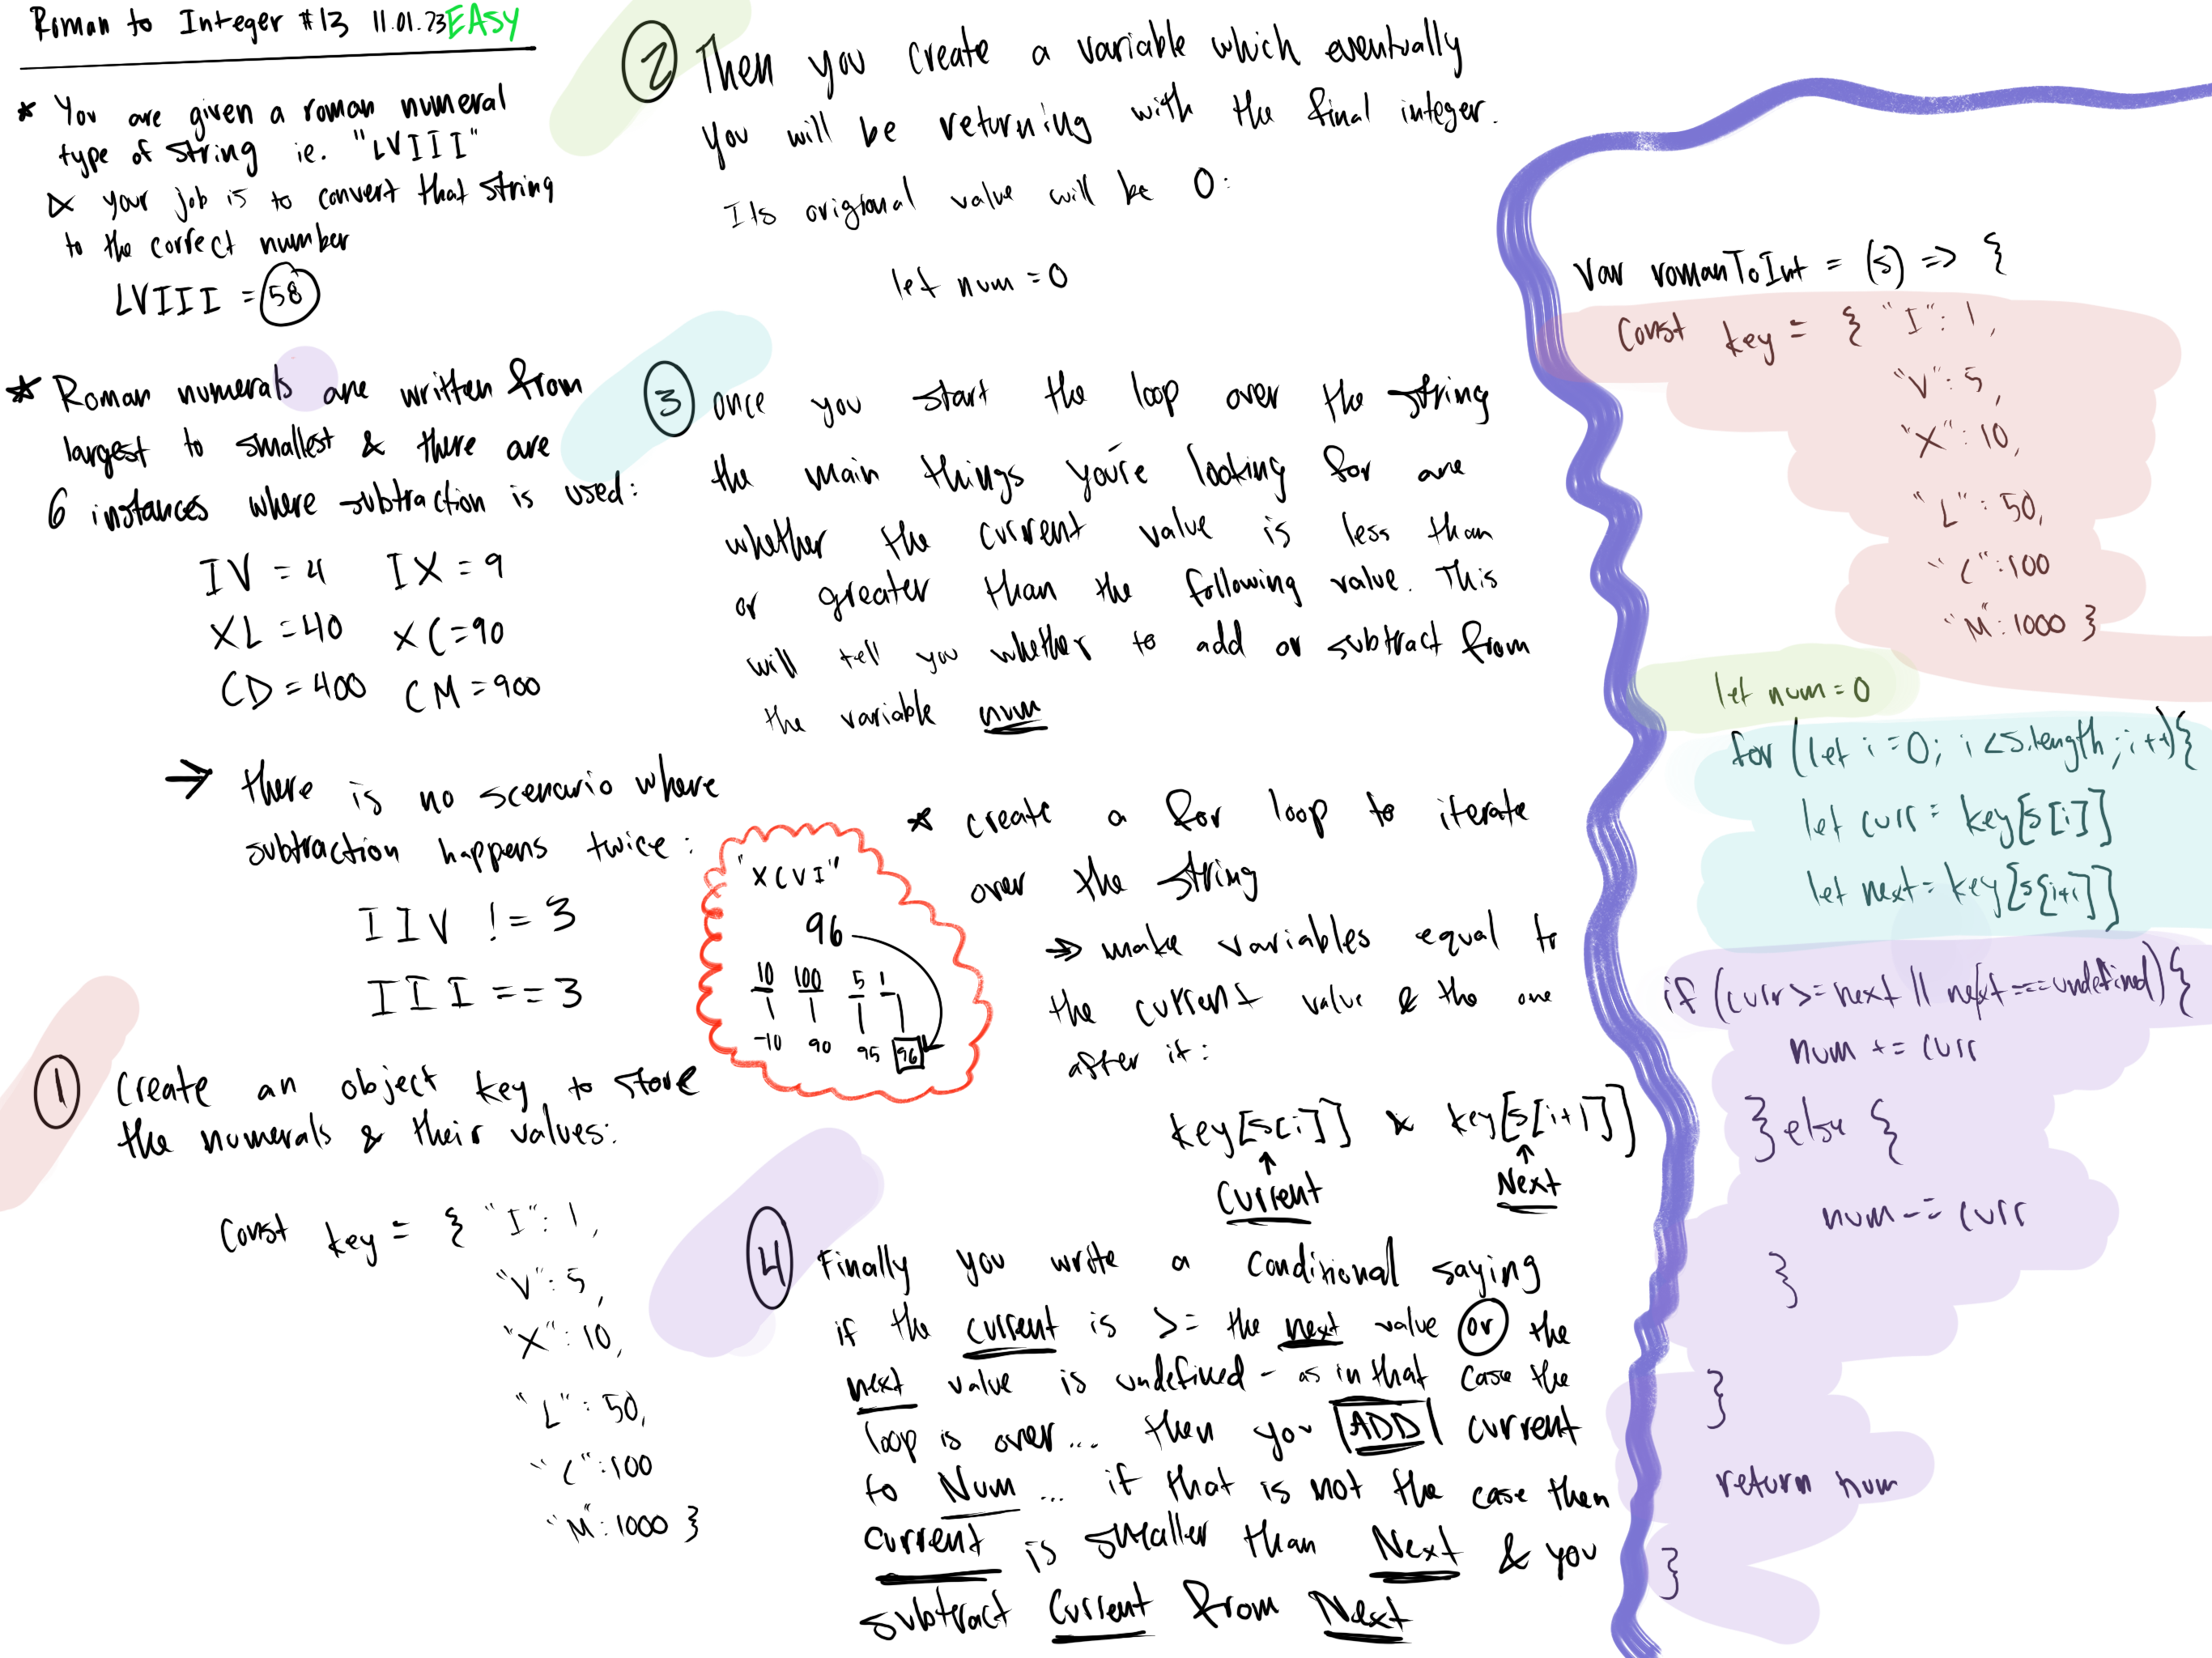 Roman to Integer #13 11.01.23 EASY
* You are given a roman numeral
type of string ie. "LVIII"
& your job is to convert that string
to the correct number
LVIII = 58
* Roman numerals are written from
largest to smallest & there are
6 instances where subtraction is used:
IV = 4 IX = 9
XL = 40 XC = 90
CD = 400 CM = 900
→ there is no scenario where
subtraction happens twice:
IIV != 3
III == 3
1 Create an object key to store
the numerals & their values:
Const key = { "I": 1,
"V": 5,
"X": 10,
"L": 50,
"C": 100
"M": 1000 }
2 Then you create a variable which eventually
you will be returning with the final integer.
Its origional value will be 0:
let num = 0
3 once you start the loop over the string
the main things you're looking for are
whether the current value is less than
or greater than the following value. This
will tell you whether to add or subtract from
the variable num
"XCVI"
96
10 100 5 1
-10 90 95 96
* create a for loop to iterate
over the string
→ make variables equal to
the current value & the one
after it:
key[s[i]] & key[s[i+1]]
↑ ↑
Current Next
4 Finally you write a conditional saying
if the current is >= the next value or the
next value is undefined - as in that case the
loop is over... then you ADD current
to Num... if that is not the case then
current is smaller than Next & you
subtract Current from Next
Var romanToInt = (s) => {
Const key = { "I": 1,
"V": 5,
"X": 10,
"L": 50,
"C": 100
"M": 1000 }
let num = 0
for (let i = 0; i < s.length; i++){
let curr = key[s[i]]
let next = key[s[i+1]]
if (curr >= next || next === undefined){
num += curr
} else {
num -= curr
}
}
return num
}